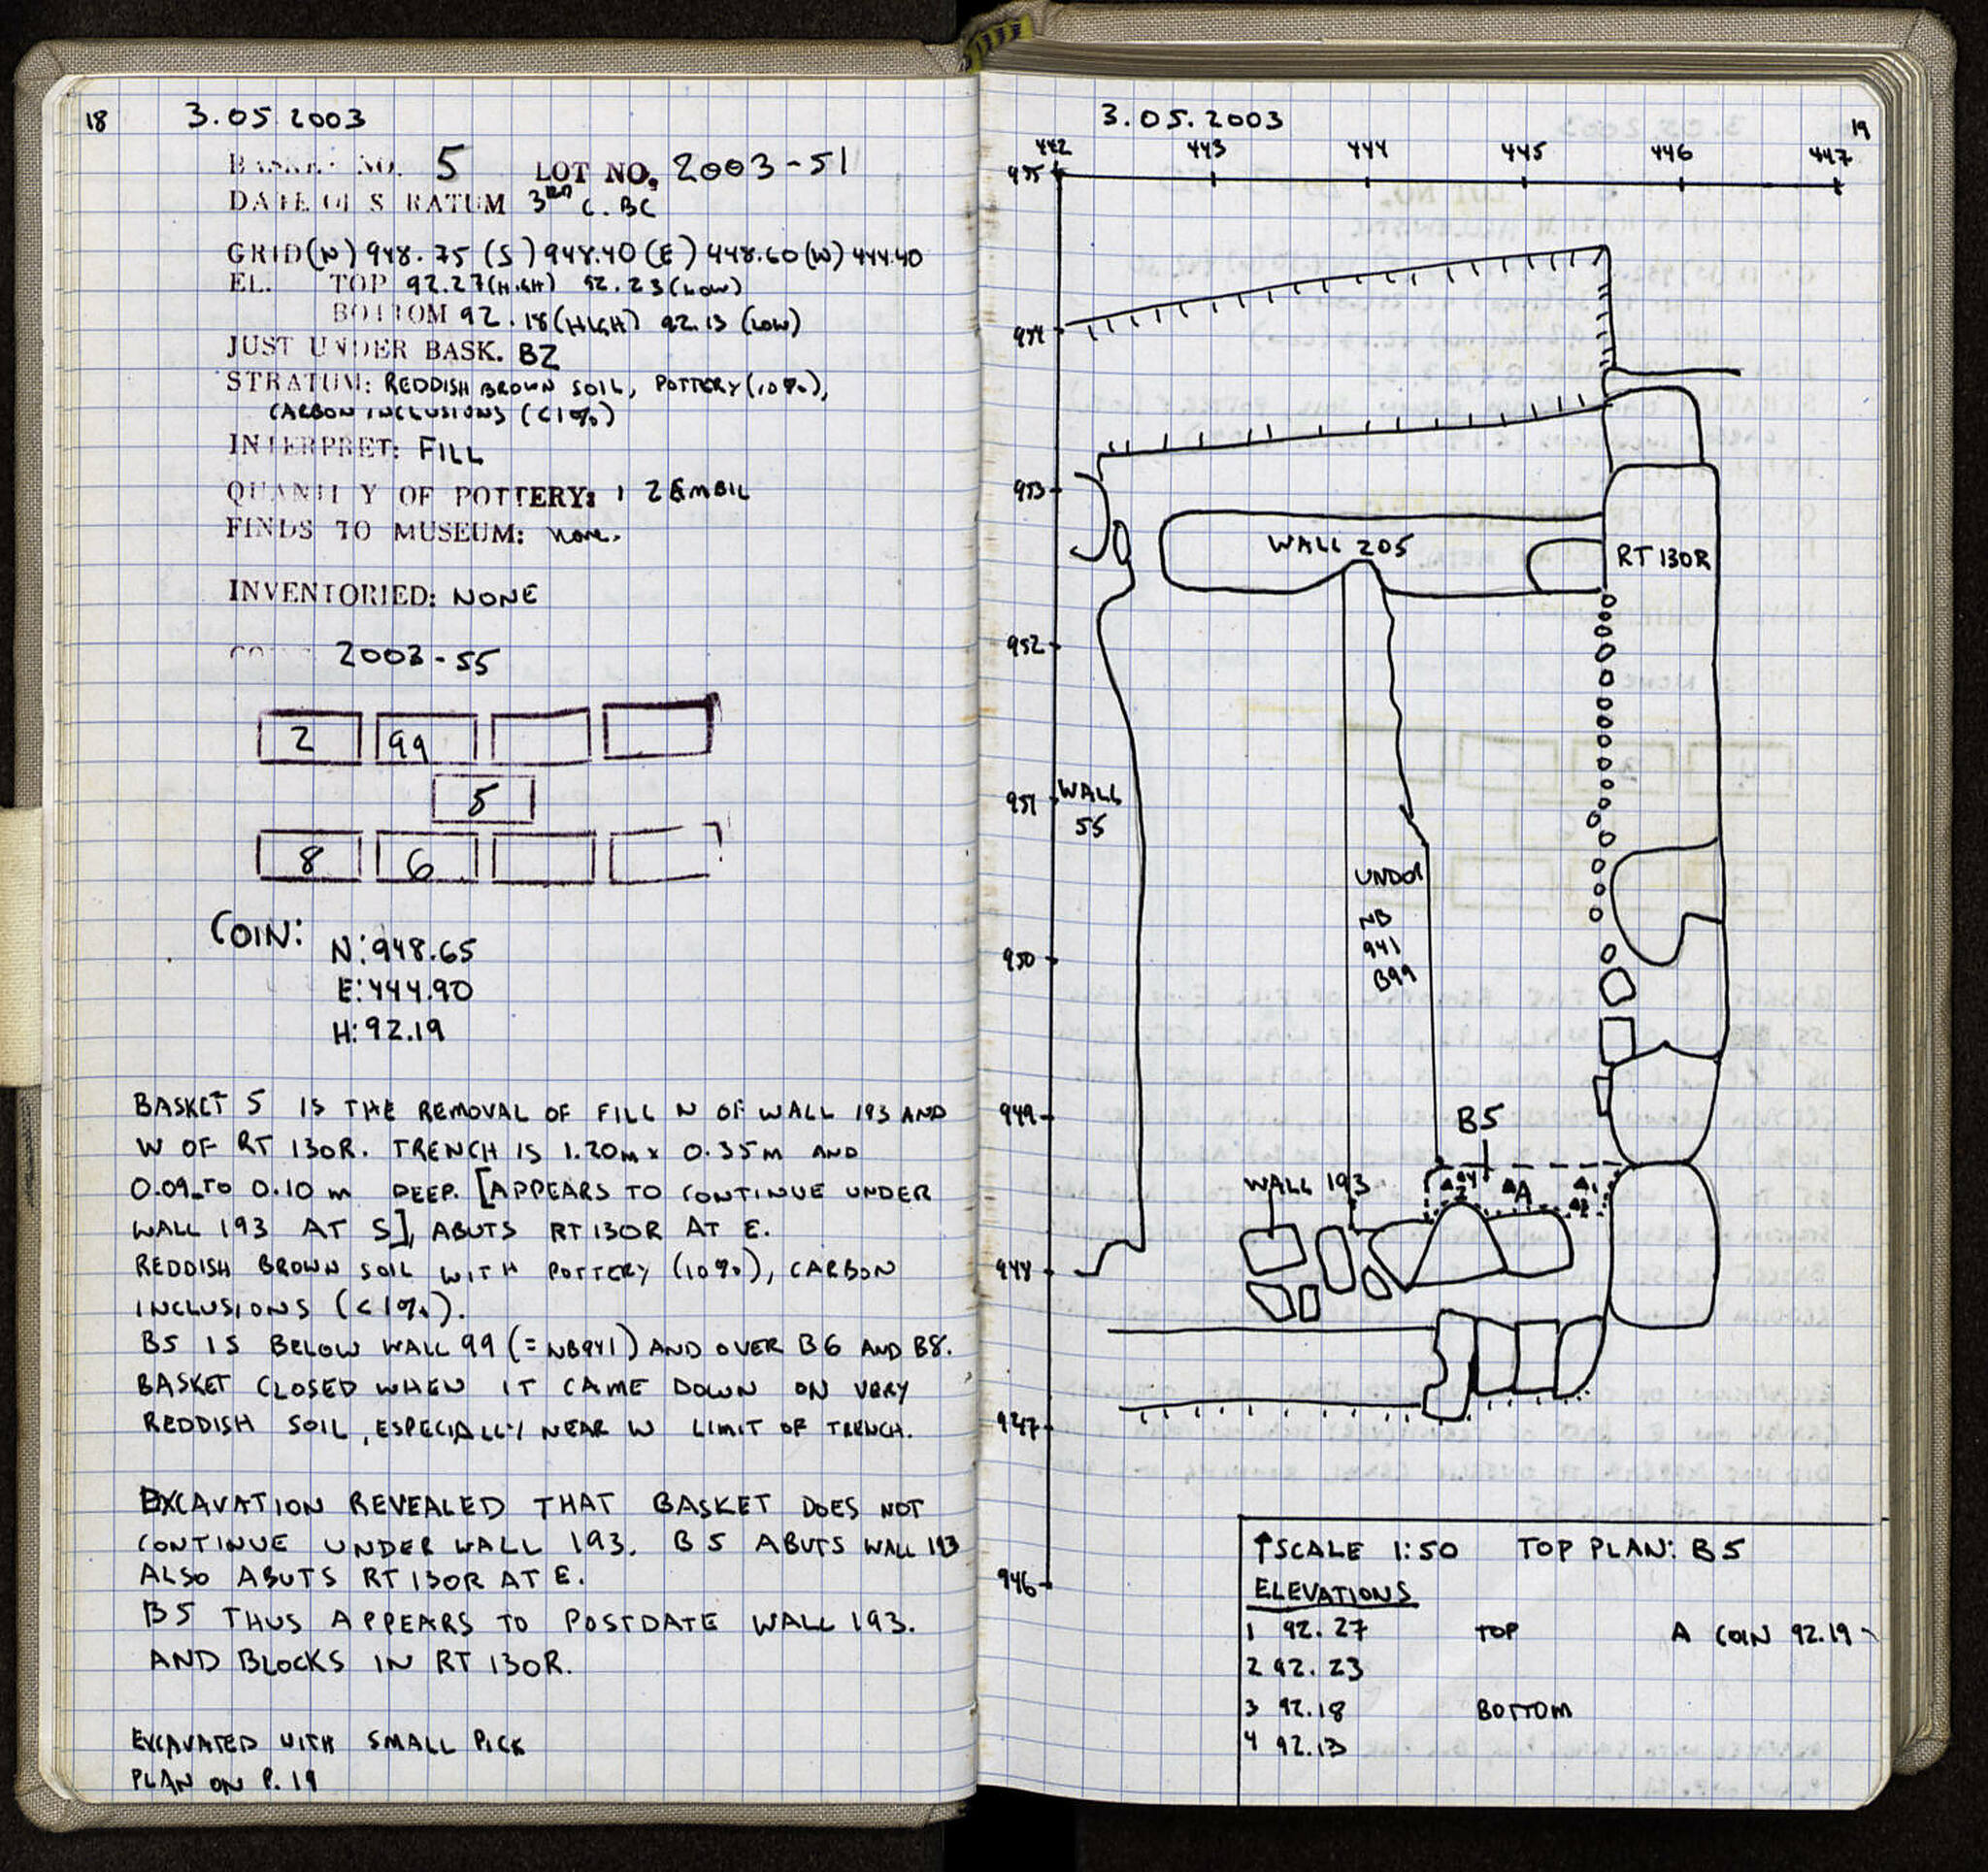 18
3.05.2003
BASKET NO. 5 LOT NO. 2003-51
DATE OF STRATUM 3RD C. BC
GRID (N) 948.75 (S) 948.40 (E) 448.60 (W) 444.40
EL. TOP 92.27 (HIGH) 92.23 (LOW)
BOTTOM 92.18 (HIGH) 92.13 (LOW)
JUST UNDER BASK. BZ
STRATUM: REDDISH BROWN SOIL, POTTERY (10%),
CARBON INCLUSIONS (<1%)
INTERPRET: FILL
QUANTITY OF POTTERY: 1 ZEMBIL
FINDS TO MUSEUM: NONE.
INVENTORIED: NONE
2003-55
2 99
5
8 6
COIN:
N: 948.65
E: 444.90
H: 92.19
BASKET 5 IS THE REMOVAL OF FILL N OF WALL 193 AND
W OF RT 130R. TRENCH IS 1.20M x 0.35M AND
0.09 TO 0.10 M DEEP. [APPEARS TO CONTINUE UNDER
WALL 193 AT S], ABUTS RT 130R AT E.
REDDISH BROWN SOIL WITH POTTERY (10%), CARBON
INCLUSIONS (<1%).
B5 IS BELOW WALL 99 (=NB941) AND OVER B6 AND B8.
BASKET CLOSED WHEN IT CAME DOWN ON VERY
REDDISH SOIL, ESPECIALLY NEAR W LIMIT OF TRENCH.
EXCAVATION REVEALED THAT BASKET DOES NOT
CONTINUE UNDER WALL 193. B5 ABUTS WALL 193
ALSO ABUTS RT 130R AT E.
B5 THUS APPEARS TO POSTDATE WALL 193.
AND BLOCKS IN RT 130R.
EXCAVATED WITH SMALL PICK
PLAN ON P. 19
3.05.2003
19
442 443 444 445 446 447
955
954
953
WALL 205
RT 130R
952
951
WALL
55
NB
941
B99
950
949
B5
WALL 193
A
948
947
946
↑ SCALE 1:50 TOP PLAN: B5
ELEVATIONS
1 92.27 TOP A COIN 92.19
2 92.23
3 92.18 BOTTOM
4 92.13